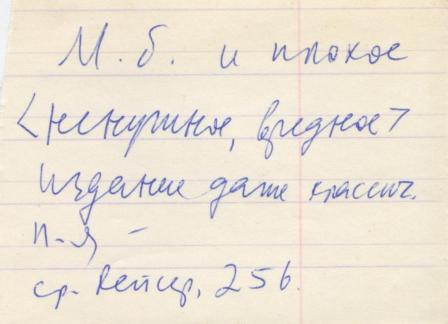 М.б. и плохое
<ненужное, вредное>
издание даже классич.
п-я –
ср. Рейсер, 256.